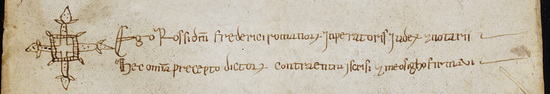 Ego Rossidm Frederici romanoꝝ inperatoris iudex ⁊ notarii
hec omia precepto dictoꝝ contraentiu scrisi ⁊ meo signo firmavi